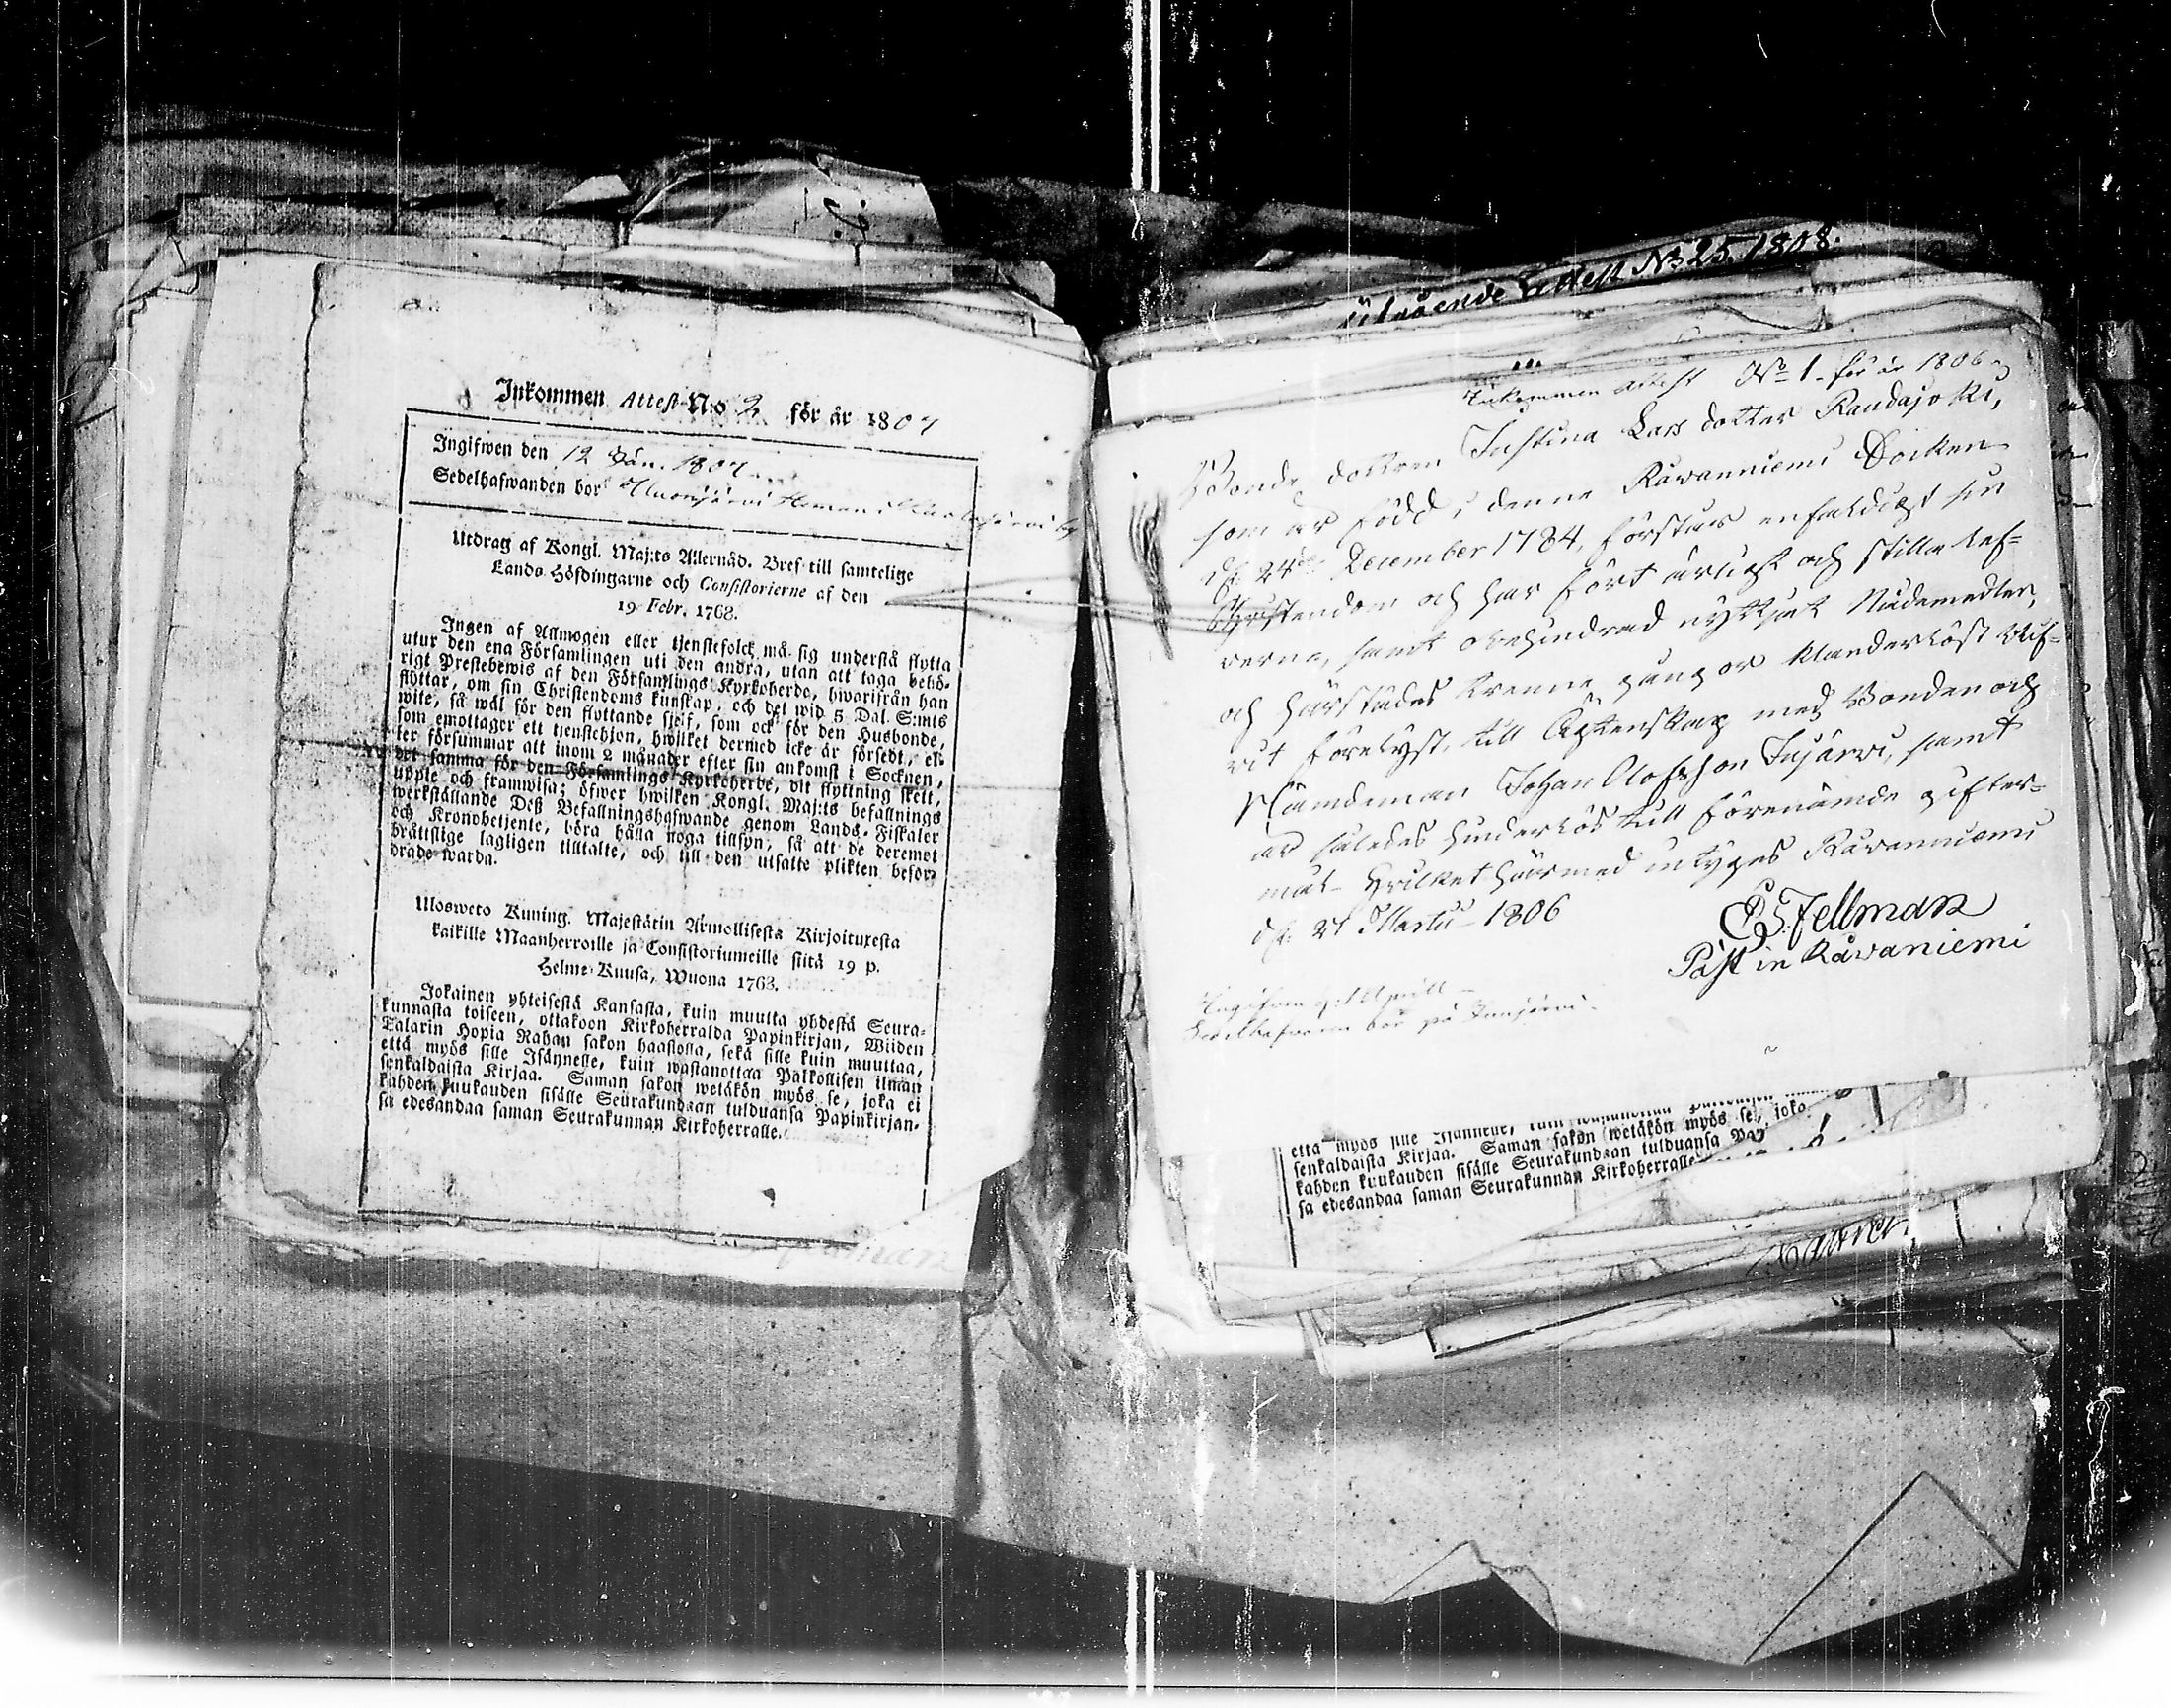 Inkommen Attest N:o 2 för år 1807
Ingifwen den 12 Jan. 1807
Sedelhafwanden bor
Utdrag af Kongl. Maj:ts Allernåd. Bref till samtelige
Lands-Höfdingarne och Consistorierne af den
19 Febr. 1768.
Ingen af Allmogen eller tjenstefolck må sig understå flytta
utur den ena Församlingen uti den andra, utan att taga behö-
rigt Prestebewis af den Församlings Kyrkoherde, hwarifrån han
flyttar, om sin Christendoms kunskap, och det wid 5 Dal. S:mts
wite, så wäl för den flyttande sjelf, som ock för den Husbonde,
som emottager ett tjenstehjon, hwilket dermed icke är försedt, el-
ler försummar att inom 2 månader efter sin ankomst i Socknen,
det samma för den Församlings Kyrkoherde, dit flyttning skett,
uppte och framwisa; öfwer hwilken Kongl. Maj:ts befallnings
werkställande Deß Befallningshafwande genom Lands-Fiskaler
och Kronobetjente, böra hålla noga tillsyn, så att de deremot
bråttslige lagligen tilltalte, och till den utsatte plikten befor-
drade warda.
Ulosweto Kuning. Majestätin Armollisesta Kirjoituxesta
kaikille Maanherroille ja Consistoriumeille siitä 19 p.
Helme-Kuusa, Wuona 1768.
Jokainen yhteisestä Kansasta, kuin muutta yhdestä Seura-
kunnasta toiseen, ottakoon Kirkoherralda Papinkirjan, Wiiden
Talarin Hopia Rahan sakon haastolla, sekä sille kuin muuttaa,
että myös sille Isännelle, kuin wastanottaa Palkollisen ilman
senkaldaista Kirjaa. Saman sakon wetäkön myös se, joka ei
kahden kuukauden sisälle Seurakundaan tulduansa Papinkirjan-
sa edesandaa saman Seurakunnan Kirkoherralle.
utgående Attest No 25 1808.
Inkommen attest No 1 för år 1806
Bonde dottren Justina Lars dotter Raudajoki,
som är född i denna Råwanniemi Socken
d. 24de December 1784, förstår enfaldigt sin
Christendom och har fört ärligt och stilla lef-
verne, samt obehindrad nyttjat Nådemedlen,
och härstädes trenne gångor klanderlöst blif-
vit förelyst, till Ägtenskap med Bonden och
Nämdeman Johan Olofsson Jujärvi, samt
är således hinderlös till förenämde gifter-
mål. Hvilket härmed intygas Råwanniemi
d. 21 Martii 1806
E J. Fellman
Past in Råvaniemi
senkaldaista Kirjaa. Saman sakon wetäkön myös se, joka
kahden kuukauden sisälle Seurakundaan tulduansa Pap
sa edesandaa saman Seurakunnan Kirkoherralle